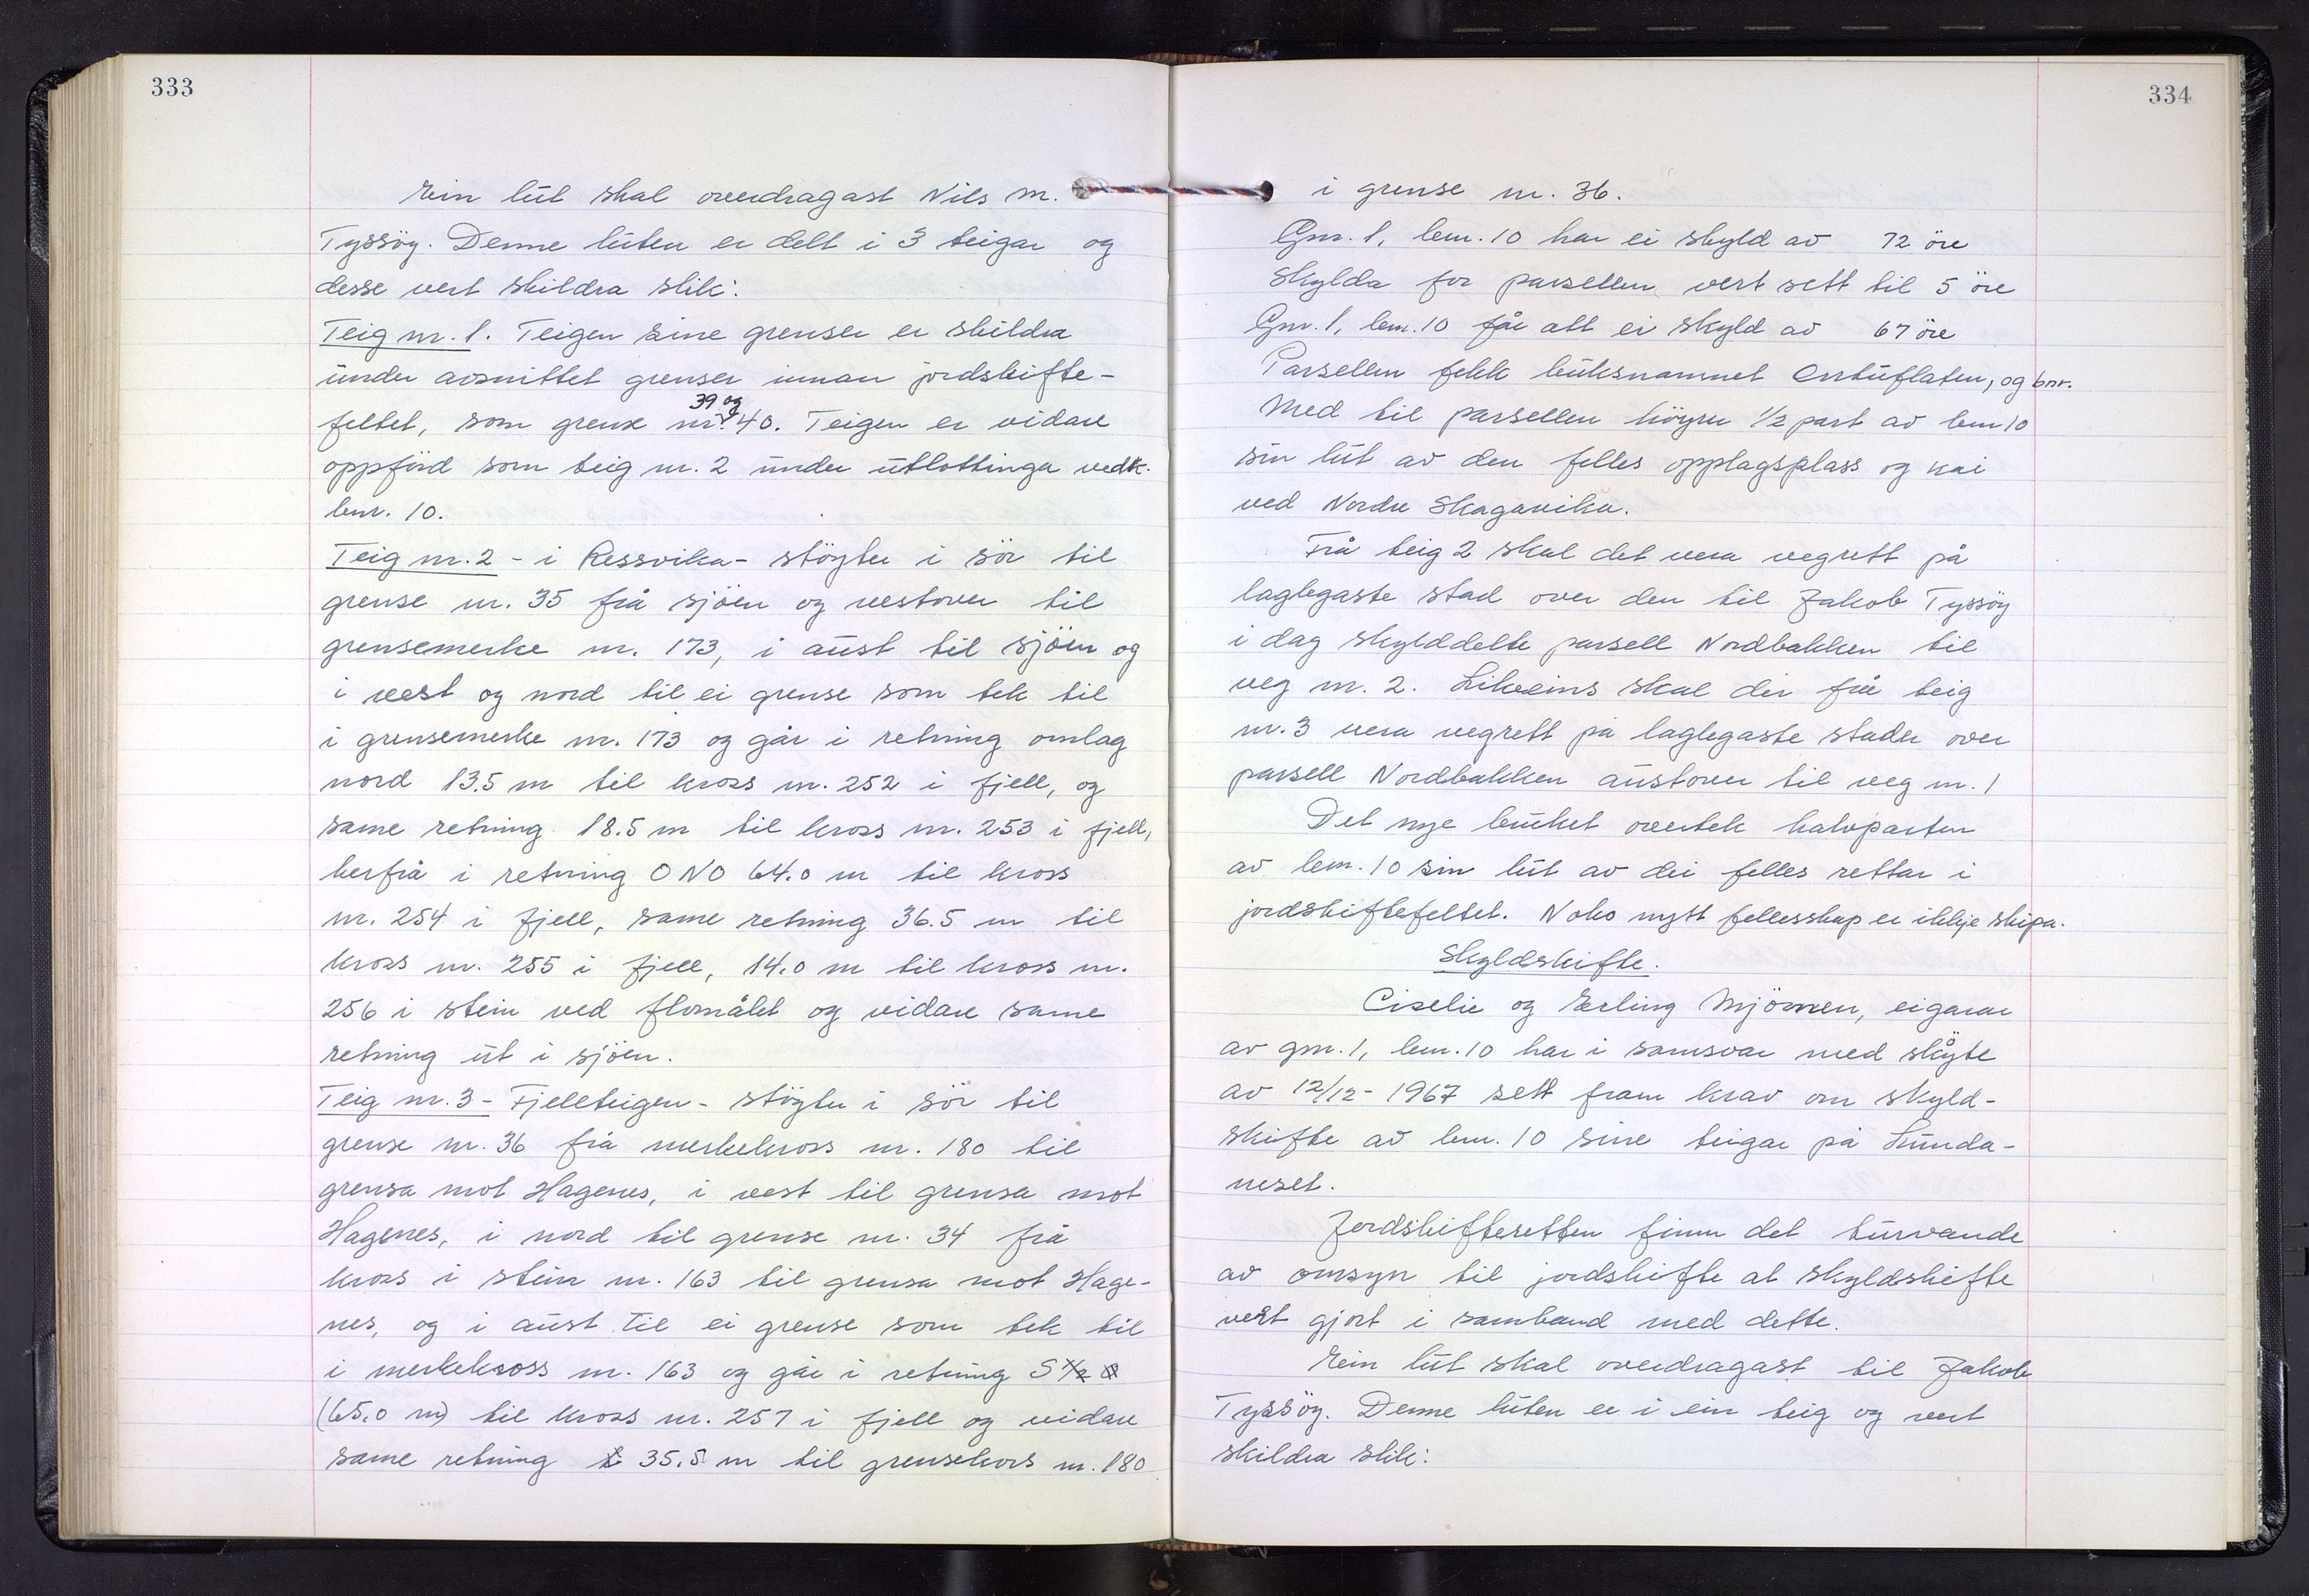 333
Ein lut skal overdragast Nils M.
Tyssöy. Denne luten er delt i 3 teigar og
desse vert skildra slik:
Teig nr. 1. Teigen sine grenser er skildra
under avsnittet grenser innan jordskifte-
feltet, som grense nr. 39 og 40. Teigen er vidare
oppförd som teig nr. 2 under utlottinga vedk.
bnr. 10.
Teig nr. 2 - i Ressvika - stöyter i sör til
grense nr. 35 frå sjöen og vestover til
grensemerke nr. 173, i aust til sjöen og
i vest og nord til ei grense som tek til
i grensemerke nr. 173 og går i retning omlag
nord 13.5 m til kross nr. 252 i fjell, og
same retning 18.5 m til kross nr. 253 i fjell,
herfrå i retning ONO 64.0 m til kross
nr. 254 i fjell, same retning 36.5 m til
kross nr. 255 i fjell, 14.0 m til kross nr.
256 i stein ved flomålet og vidare same
retning ut i sjöen.
Teig nr. 3 - Fjellteigen - stöyter i sör til
grense nr. 36 frå merkekross nr. 180 til
grensa mot Hagenes, i vest til grensa mot
Hagenes, i nord til grense nr. 34 frå
kross i stein nr. 163 til grensa mot Hage-
nes, og i aust til ei grense som tek til
i merkekross nr. 163 og går i retning S
(65.0 m) til kross nr. 257 i fjell og vidare
same retning 35.5 m til grensekors nr. 180
334
i grense nr. 36.
Gnr. 1, bnr. 10 har ei skyld av 72 öre
Skylda for parsellen vert sett til 5 öre
Gnr. 1, bnr. 10 får att ei skyld av 67 öre
Parsellen fekk bruksnamnet Orrtuflaten, og bnr.
Med til parsellen höyrer 1/2 part av bnr 10
sin lut av den felles opplagsplass og kai
ved Nordre Skagavika.
Frå teig 2 skal det vera vegrett på
laglegaste stad over den til Jakob Tyssöy
i dag skylddelte parsell Nordbakken til
veg nr. 2. Likeeins skal der frå teig
nr. 3 vera vegrett på laglegaste stader over
parsell Nordbakken austover til veg nr. 1
Det nye bruket overtek halvparten
av bnr. 10 sin lut av dei felles rettar i
jordskiftefeltet. Noko nytt fellesskap er ikkje skipa.
Skyldskifte.
Ciselie og Erling Mjömen, eigarar
av gnr. 1, bnr. 10 har i samsvar med skøyte
av 12/12 - 1967 sett fram krav om skyld-
skifte av bnr. 10 sine teigar på Lunda-
neset.
Jordskifteretten finn det turvande
av omsyn til jordskifte at skyldskifte
vert gjort i samband med dette.
Ein lut skal overdragast til Jakob
Tyssöy. Denne luten er i ein teig og vert
skildra slik: